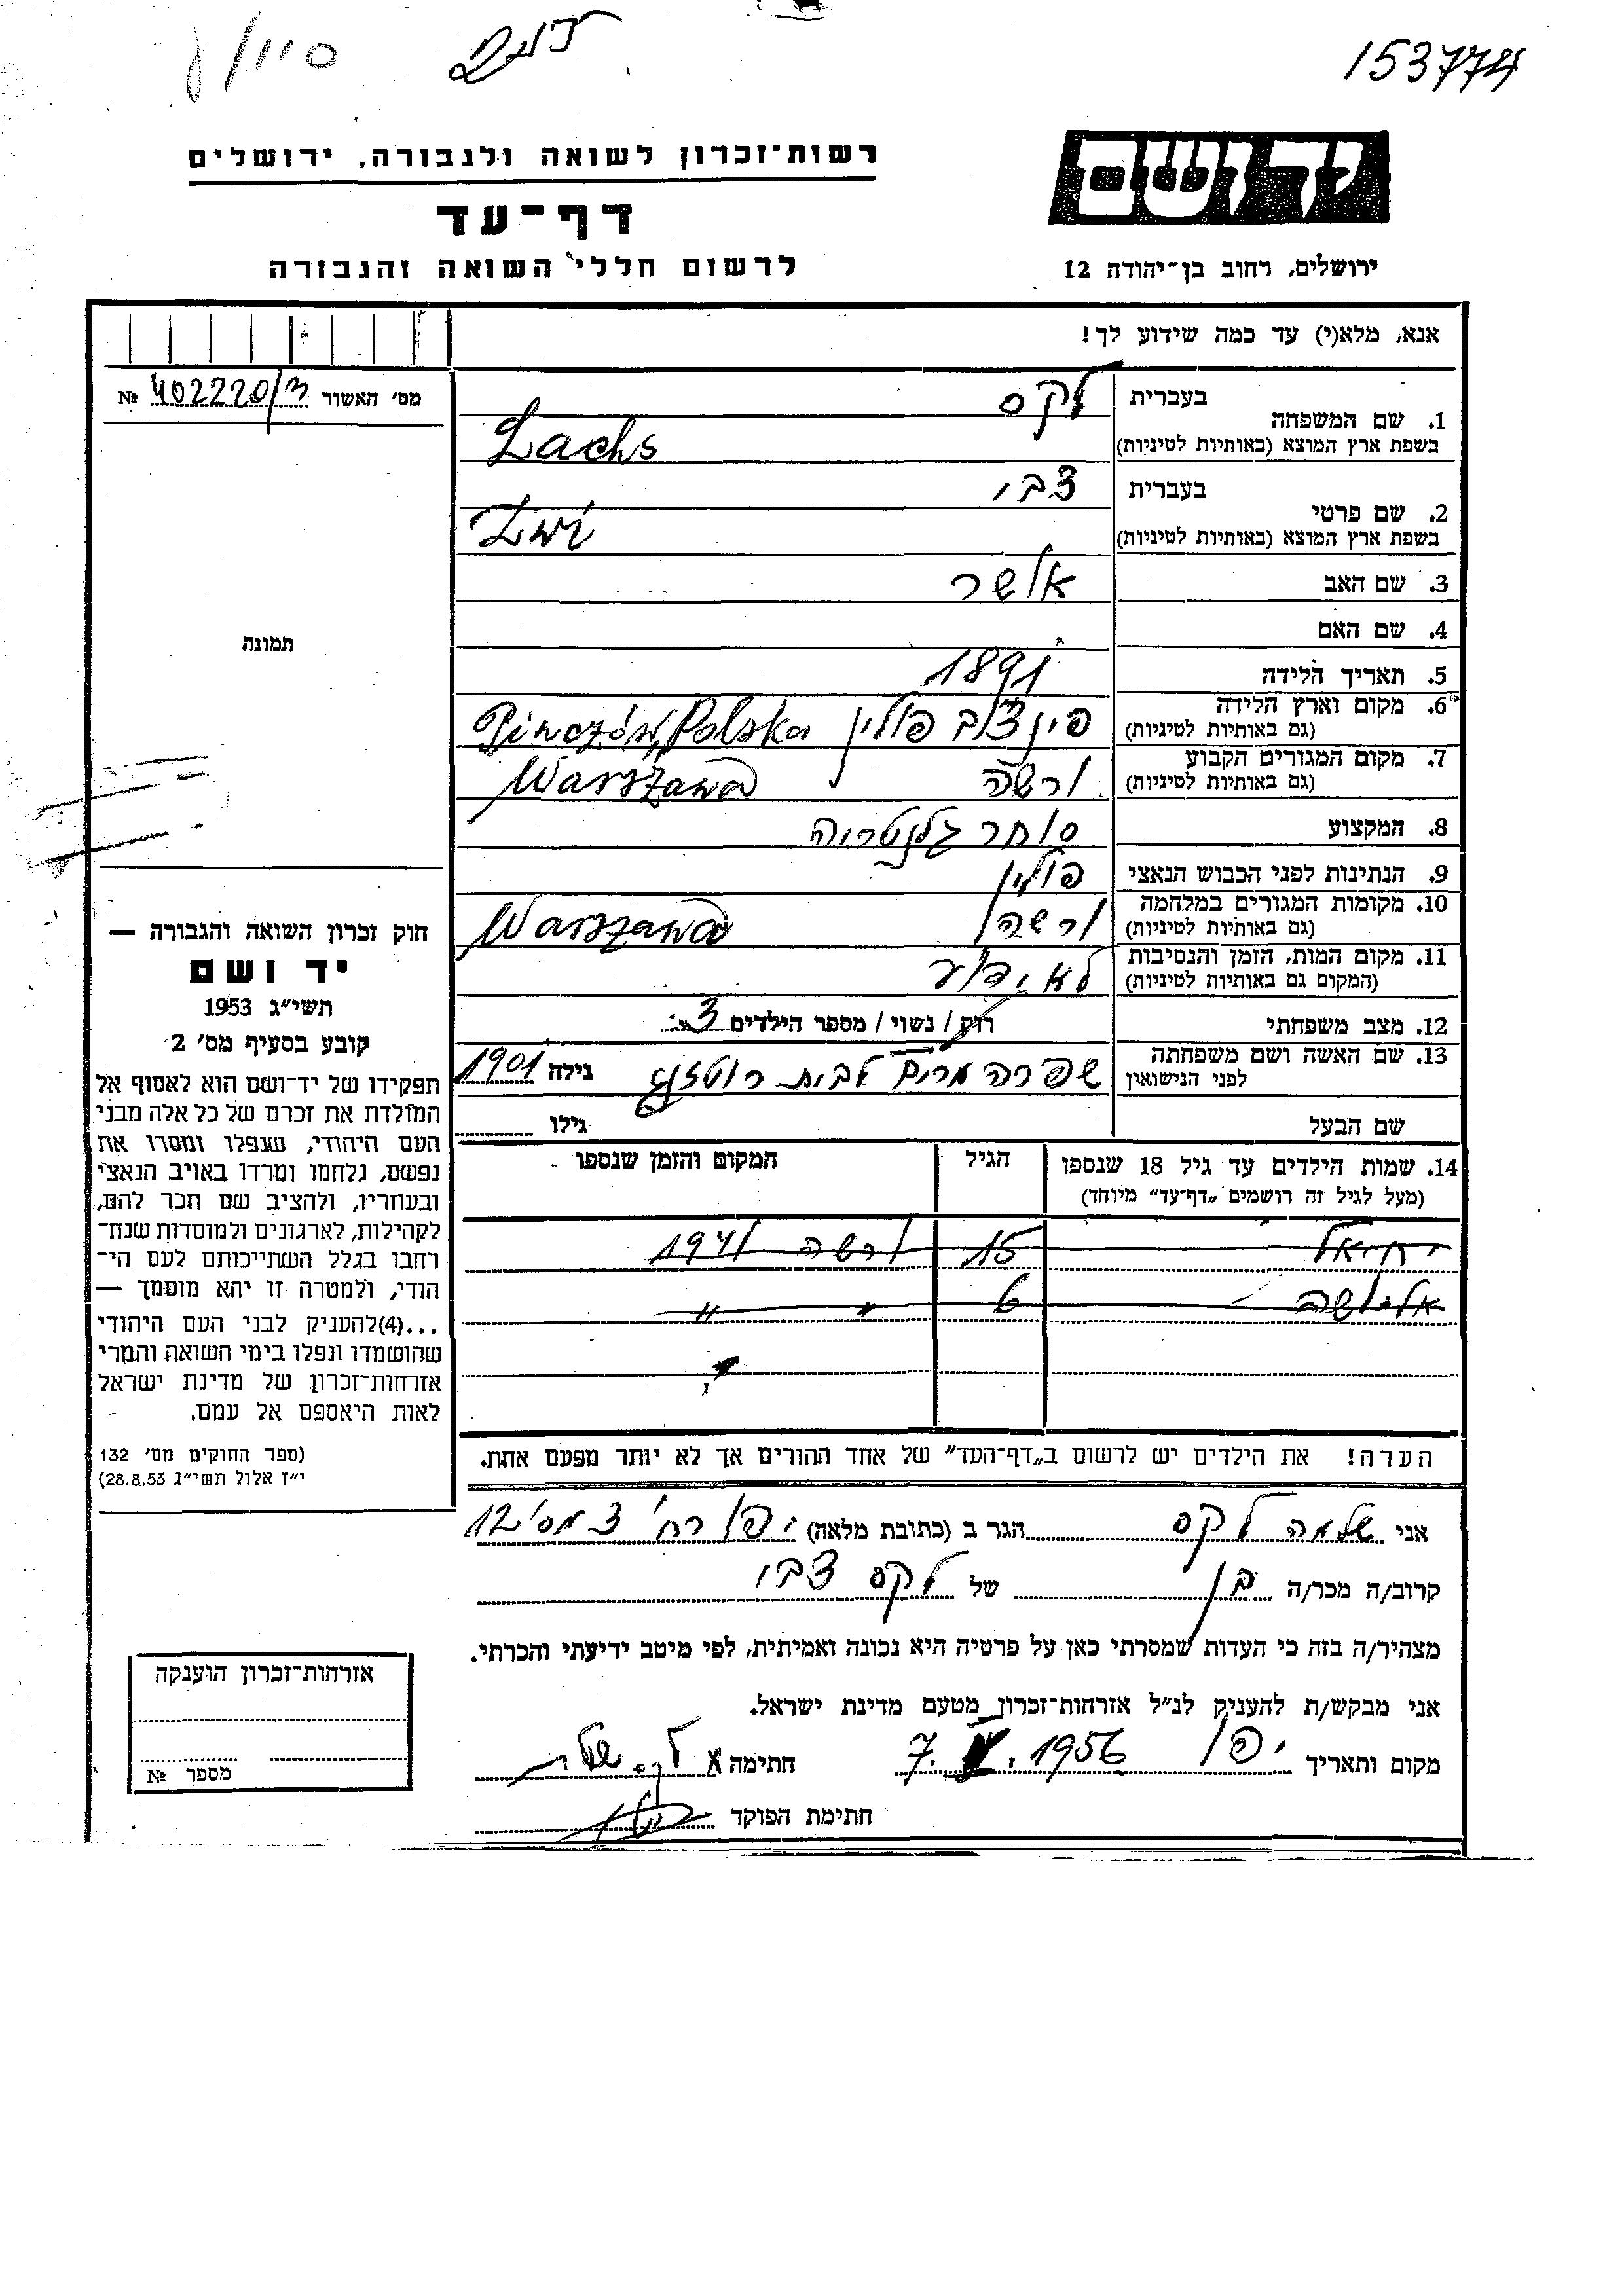 153774
יד ושם
ירושלים, רחוב בן־יהודה 12
רשות־זכרון לשואה ולגבורה, ירושלים
דף־עד
לרשום חללי השואה והגבורה
אנא, מלא(י) עד כמה שידוע לך!
מס' האשור 402220/3 №
1. שם המשפחה בעברית לקס
בשפת ארץ המוצא (באותיות לטיניות) Lachs
2. שם פרטי בעברית צבי
בשפת ארץ המוצא (באותיות לטיניות) Zwi
3. שם האב אשר
4. שם האם
5. תאריך הלידה 1891
6. מקום וארץ הלידה (גם באותיות לטיניות) פינצ'וב פולין Pinczów, Polska
7. מקום המגורים הקבוע (גם באותיות לטיניות) ורשה Warszawa
8. המקצוע סוחר גלנטריה
9. הנתינות לפני הכבוש הנאצי פולין
10. מקומות המגורים במלחמה (גם באותיות לטיניות) ורשה Warszawa
11. מקום המות, הזמן והנסיבות (המקום גם באותיות לטיניות) לא ידוע
12. מצב משפחתי רוק / נשוי / מספר הילדים 3
13. שם האשה ושם משפחתה לפני הנישואין שפרה מרים לבית גילה 1901
שם הבעל גילו
14. שמות הילדים עד גיל 18 שנספו הגיל המקום והזמן שנספו
(מעל לגיל זה רושמים „דף־עד" מיוחד)
יחיאל 15 ורשה 1941
אלישבה 6 " "
הערה! את הילדים יש לרשום ב„דף־העד" של אחד ההורים אך לא יותר מפעם אחת.
אני שלמה לקס הגר ב (כתובת מלאה) יפו רח' 3 מס' 12
קרוב/ה מכר/ה בן של לקס צבי
מצהיר/ה בזה כי העדות שמסרתי כאן על פרטיה היא נכונה ואמיתית, לפי מיטב ידיעתי והכרתי.
אני מבקש/ת להעניק לנ"ל אזרחות־זכרון מטעם מדינת ישראל.
מקום ותאריך יפו 1956 7. חתימה X לקס שלמה
חתימת הפוקד
תמונה
חוק זכרון השואה והגבורה —
יד ושם
תשי"ג 1953
קובע בסעיף מס' 2
תפקידו של יד־ושם הוא לאסוף אל
המולדת את זכרם של כל אלה מבני
העם היהודי, שנפלו ומסרו את
נפשם, נלחמו ומרדו באויב הנאצי
ובעוזריו, ולהציב שם וזכר להם,
לקהילות, לארגונים ולמוסדות שנח־
רבו בגלל השתייכותם לעם הי־
הודי, ולמטרה זו יהא מוסמך —
...(4)להעניק לבני העם היהודי
שהושמדו ונפלו בימי השואה והמרי
אזרחות־זכרון של מדינת ישראל
לאות היאספם אל עמם.
(ספר החוקים מס' 132
י"ז אלול תשי"ג 28.8.53)
אזרחות־זכרון הוענקה
מספר №